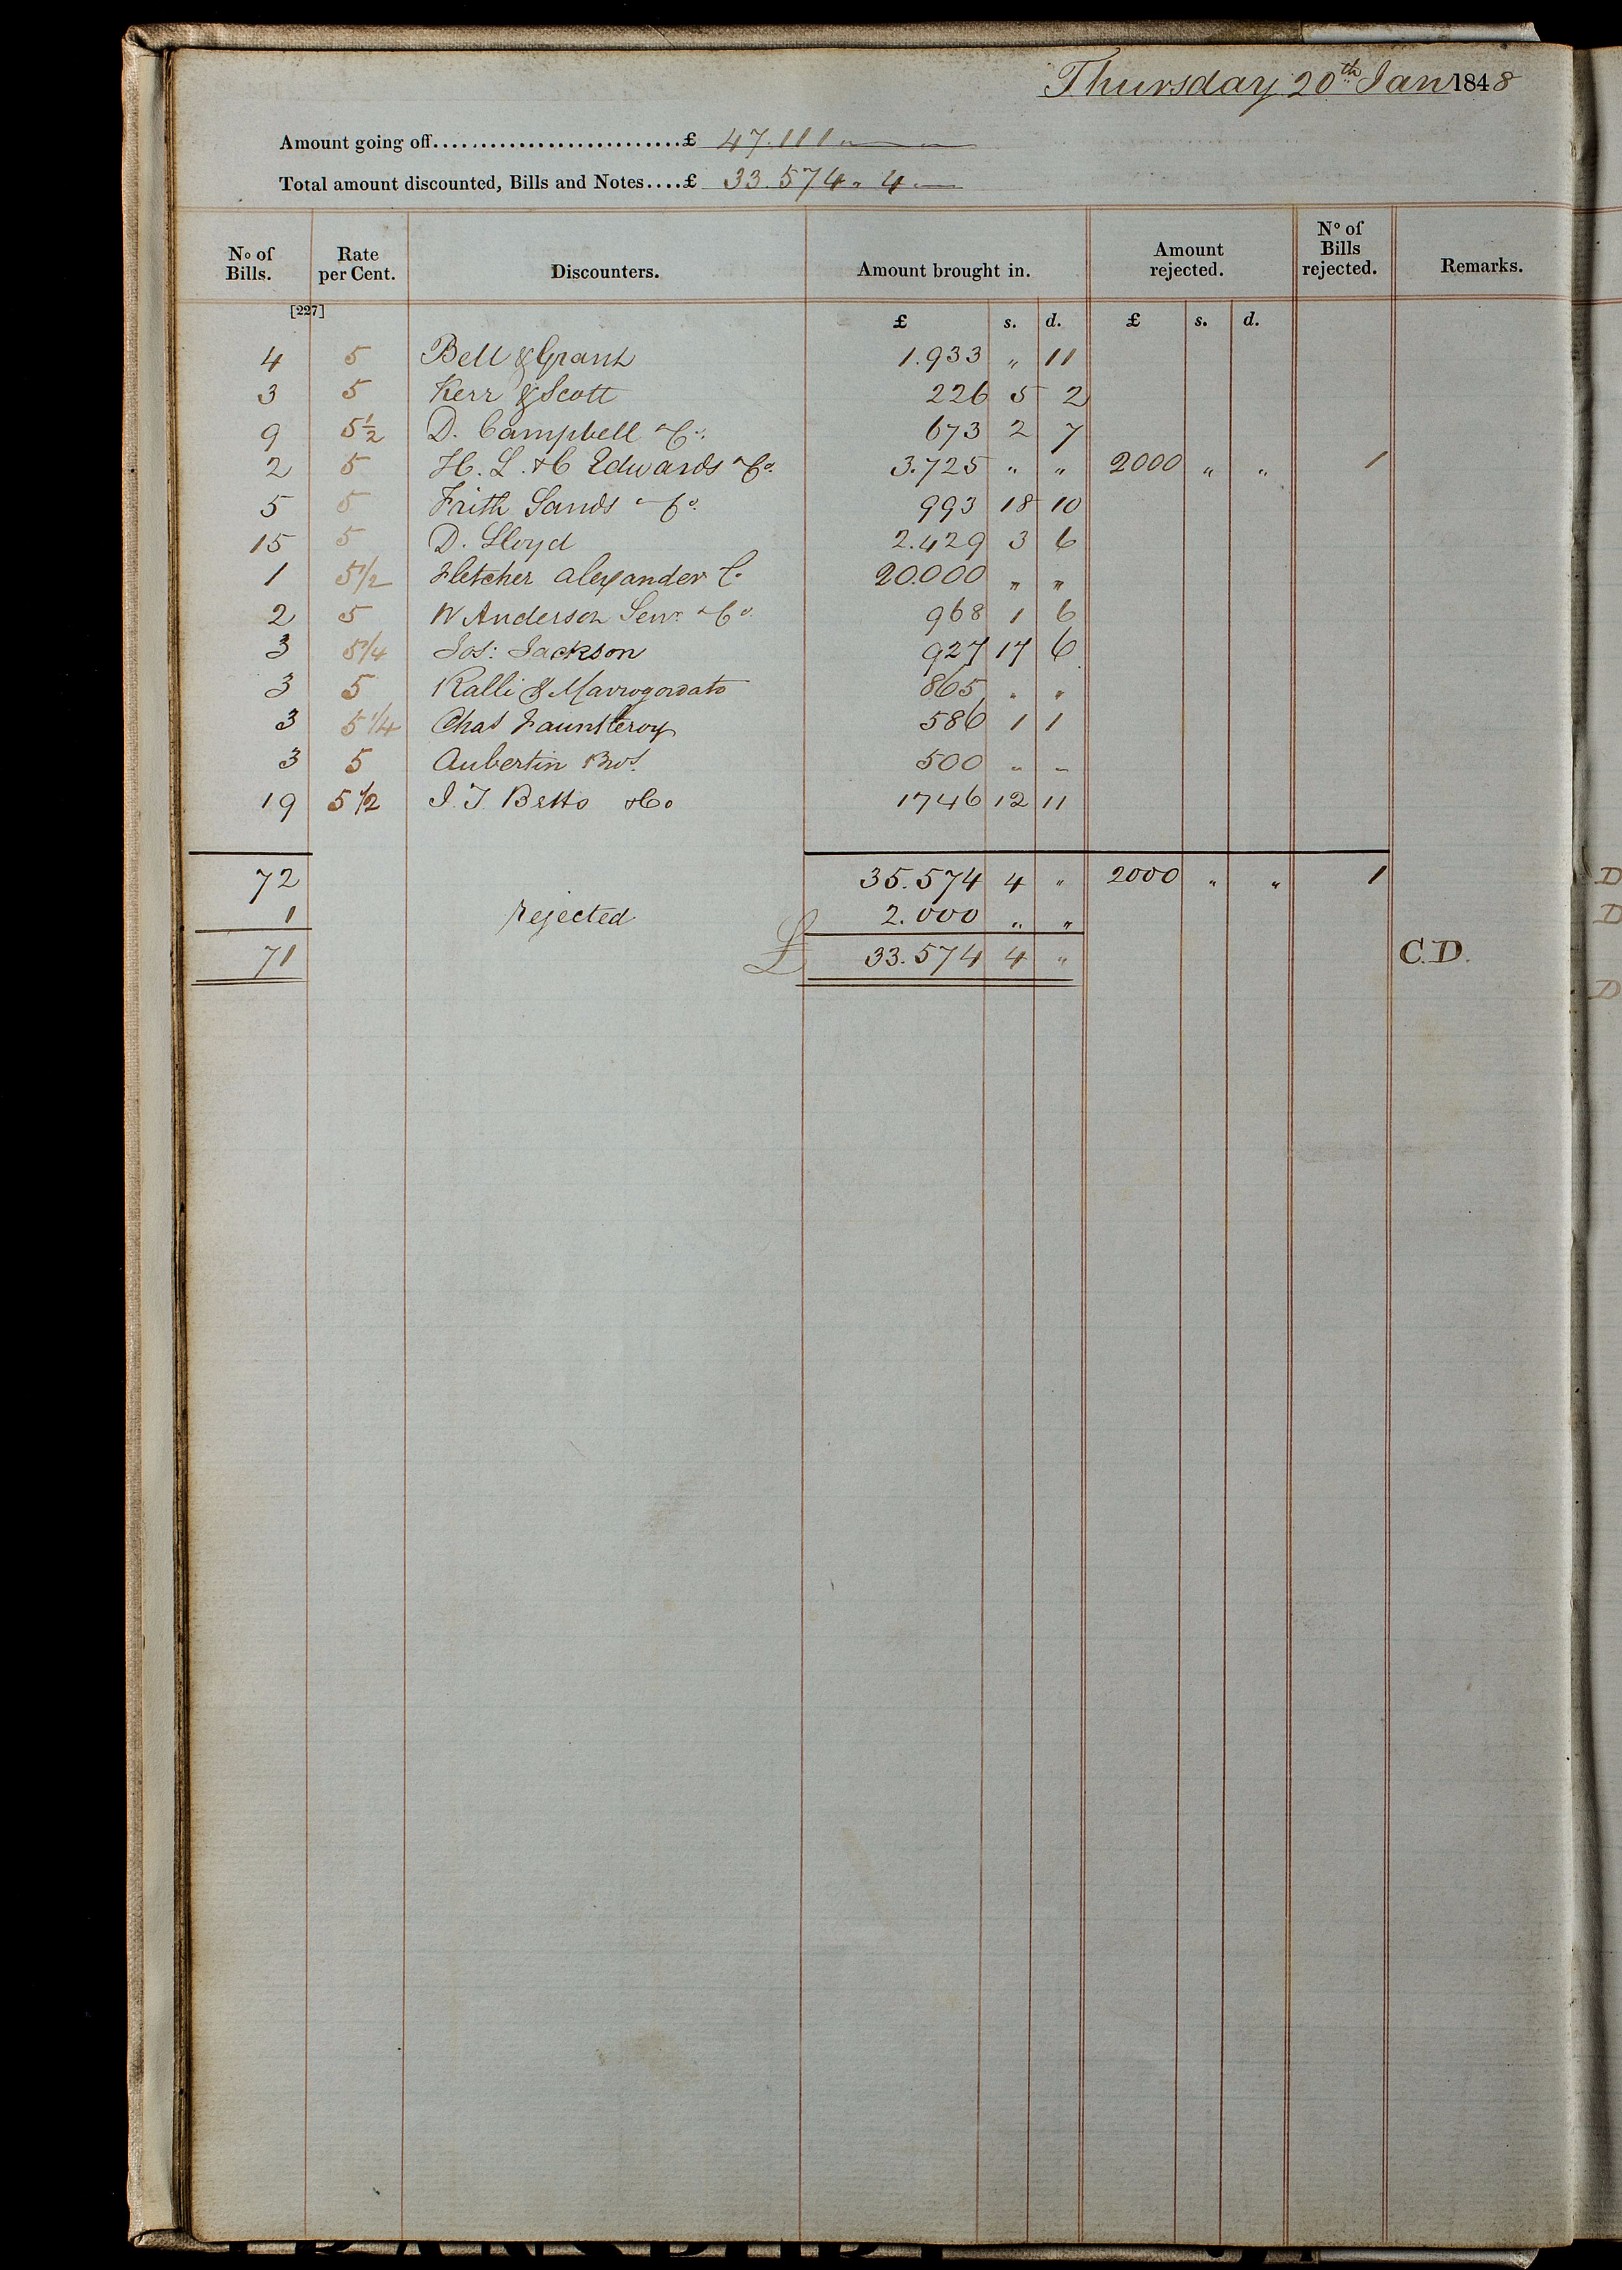 Thursday 20th Jan 1848
Amount going off..........................£ 47.111 „ — „ —
Total amount discounted, Bills and Notes....£ 33.574 „ 4 —
No of Bills. Rate per Cent. Discounters. Amount brought in. Amount rejected. No of Bills rejected. Remarks.
[227] £ s. d. £ s. d.
4 5 Bell & Grant 1.933 „ 11
3 5 Kerr & Scott 226 5 2
9 5½ D. Campbell & Co. 673 2 7
2 5 H. L. & C Edwards & Co. 3.725 „ „ 2000 „ „ 1
5 5 Frith Sands & Co. 993 18 10
15 5 D. Lloyd 2.429 3 6
1 5½ Fletcher Alexander C. 20.000 „ „
2 5 W Anderson Senr. & Co. 968 1 6
3 5¼ Jos: Jackson 927 17 6
3 5 Ralli & Mavrogordato 865 „ „
3 5¼ Chas Fauntleroy 586 1 1
3 5 Aubertin Bros. 500 „ „
19 5½ J. T. Betts & Co 1746 12 11
72 35.574 4 „ 2000 „ „ 1
1 rejected 2.000 „ „
71 £ 33.574 4 „ C.D.
D
D
D